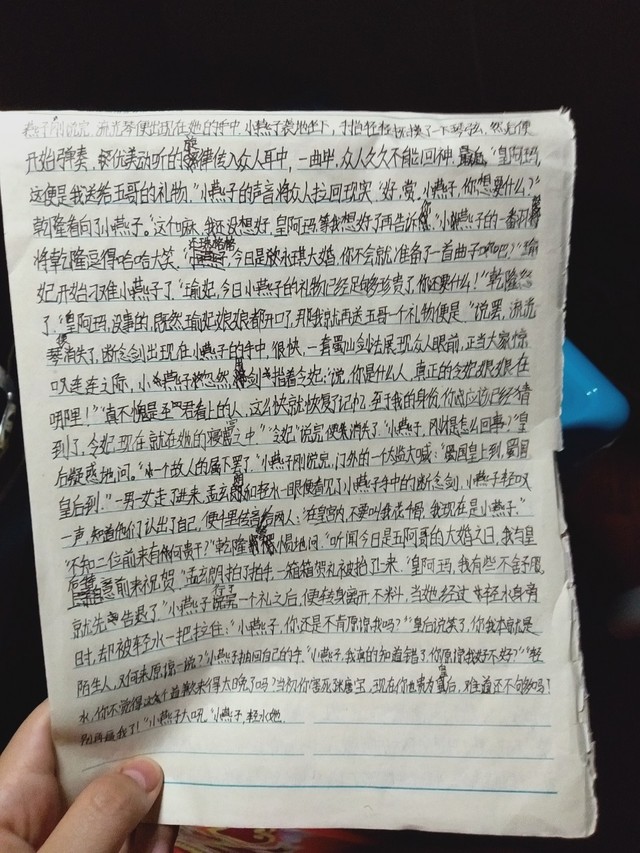 燕子刚说完，流光琴便出现在她的手中，小燕子席地坐下，手指轻轻拨了一下琴弦，然后便
开始弹奏，优美动听的旋律传入众人耳中，一曲毕，众人久久不能回神，最后，“皇阿玛，
这便是我送给五哥的礼物。”小燕子的声音将众人拉回现实“好，赏，小燕子，你想要什么？”
乾隆看向了小燕子。“这个嘛，我还没想好，皇阿玛，等我想好了再告诉你。”小燕子的一番
将乾隆逗得哈哈大笑。“还珠格格，今日是永琪大婚，你不会就准备了一首曲子吧？”瑜
妃开始刁难小燕子了。“瑜妃，今日小燕子的礼物已经足够珍贵了，你还要什么！”乾隆怒
了。“皇阿玛，没事的，既然瑜妃娘娘都开口了，那我就再送五哥一个礼物便是。”说罢，流光
琴消失了，断念剑出现在小燕子的手中，很快，一套蜀山剑法展现众人眼前，正当大家惊
叹连连之际，小燕子忽然，剑指着令妃：“说，你是什么人，真正的令妃娘娘在
哪里！”“真不愧是君看上的人，这么快就恢复了记忆，至于我的身份，你应该已经猜
到了，令妃现在就在她的寝宫之中”“令妃”说完便消失了。“小燕子，刚才是怎么回事？”皇
后疑惑地问。“一个故人的属下罢了。”小燕子刚说完，门外的一个太监大喊：“蜀国皇上到，蜀国
皇后到。”一男一女走了进来，孟玄朗和轻水一眼便看见了小燕子手中的断念剑，小燕子轻叹
一声，知道他们认出了自己，便千里传音给两人：“在皇宫内，不要叫我花千骨，我现在是小燕子。”
“不知二位前来有何贵干？”乾隆惕地问。“听闻今日是五阿哥的大婚之日，我与皇
后特意前来祝贺。”孟玄朗拍了拍手，一箱箱贺礼被抬了上来。“皇阿玛，我有些不舒服，
就先告退了。”小燕子行了一个礼之后，便转身离开，不料，当她经过轻水身旁
时，却被轻水一把拉住：“小燕子，你还是不肯原谅我吗？”“皇后说笑了，你我本就是
陌生人，又何来原谅一说？”小燕子抽回自己的手。“小燕子，我真的知道错了，你原谅我好不好？”“轻
水，你不觉得这个道歉来得太晚了吗？当初，你害死糖宝，现在你也贵为皇后，难道还不够吗！
别再逼我了！”小燕子大吼。“小燕子，轻水她